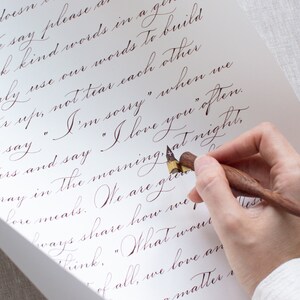 doesn't
say please an
k kind words in a gen
only use our words to build
er up, not tear each other
say "I'm sorry" when we
ers and say "I love you" often.
pray in the morning, at night,
fore meals. We are g
always share how we
think. "What wou
of all, we love an
matter